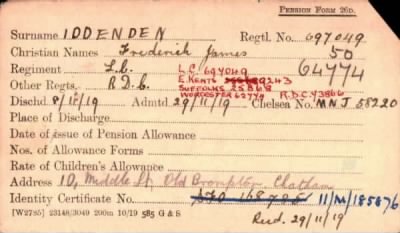 PENSION FORM 26D.
Surname IDDENDEN Regtl. No. 697049
Christian Names Frederick James 50
Regiment L.C. L.C. 697049 64774
Other Regts. R.D.C. E. KENTS 9243
SUFFOLKS 25868
WORCESTER 62774 R.D.C. 43866
Dischd 8/12/19 Admtd. 29/11/19 Chelsea No. MNJ 58220
Place of Discharge
Date of issue of Pension Allowance
Nos. of Allowance Forms
Rate of Children's Allowance
Address 10, Middle St, Old Brompton Chatham
Identity Certificate No. 11/M/185876
[W2785] 23148/3049 200m 10/19 585 G & S Recd. 29/11/19